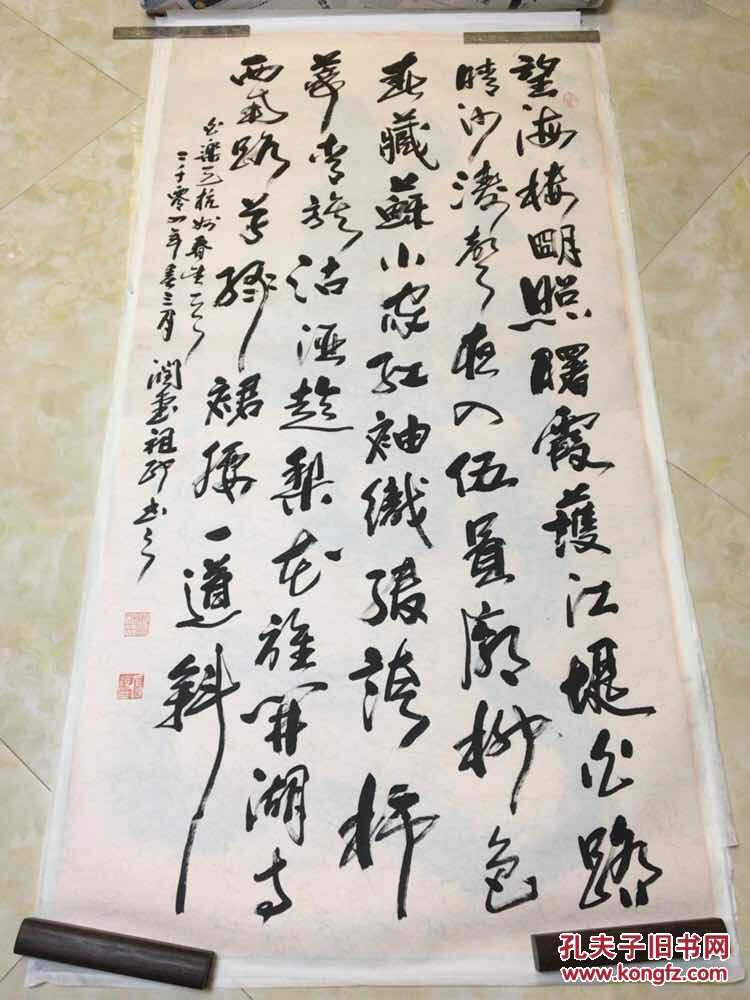 望海楼明照曙霞護江堤白踏
晴沙濤聲夜入伍員廟柳色
春藏蘇小家紅袖織綾誇柿
蒂青旗沽酒趁梨花誰開湖寺
西南路草綠裙腰一道斜
白樂天杭州春望一首
二千零四年春三月
孔夫子旧书网
www.kongfz.com